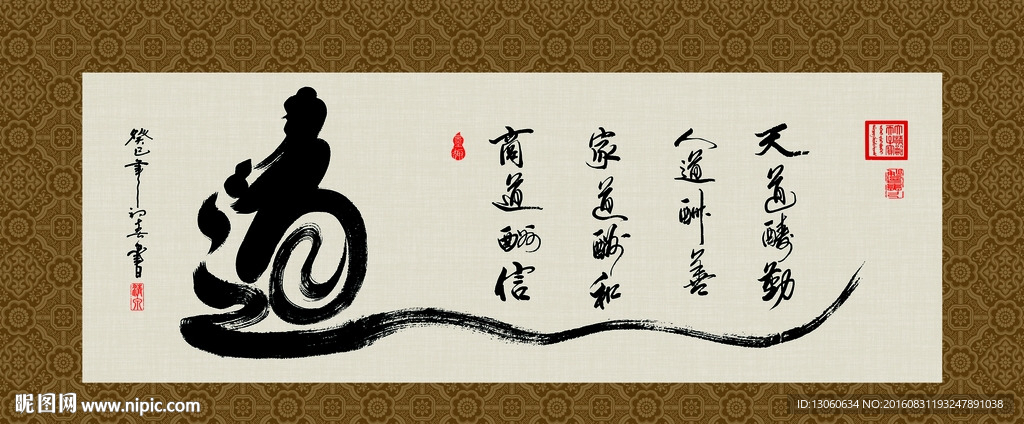 天道酬勤
人道酬善
家道酬和
商道酬信
道
癸巳年初春書
昵图网 www.nipic.com
ID:13060634 NO:20160831193247891038